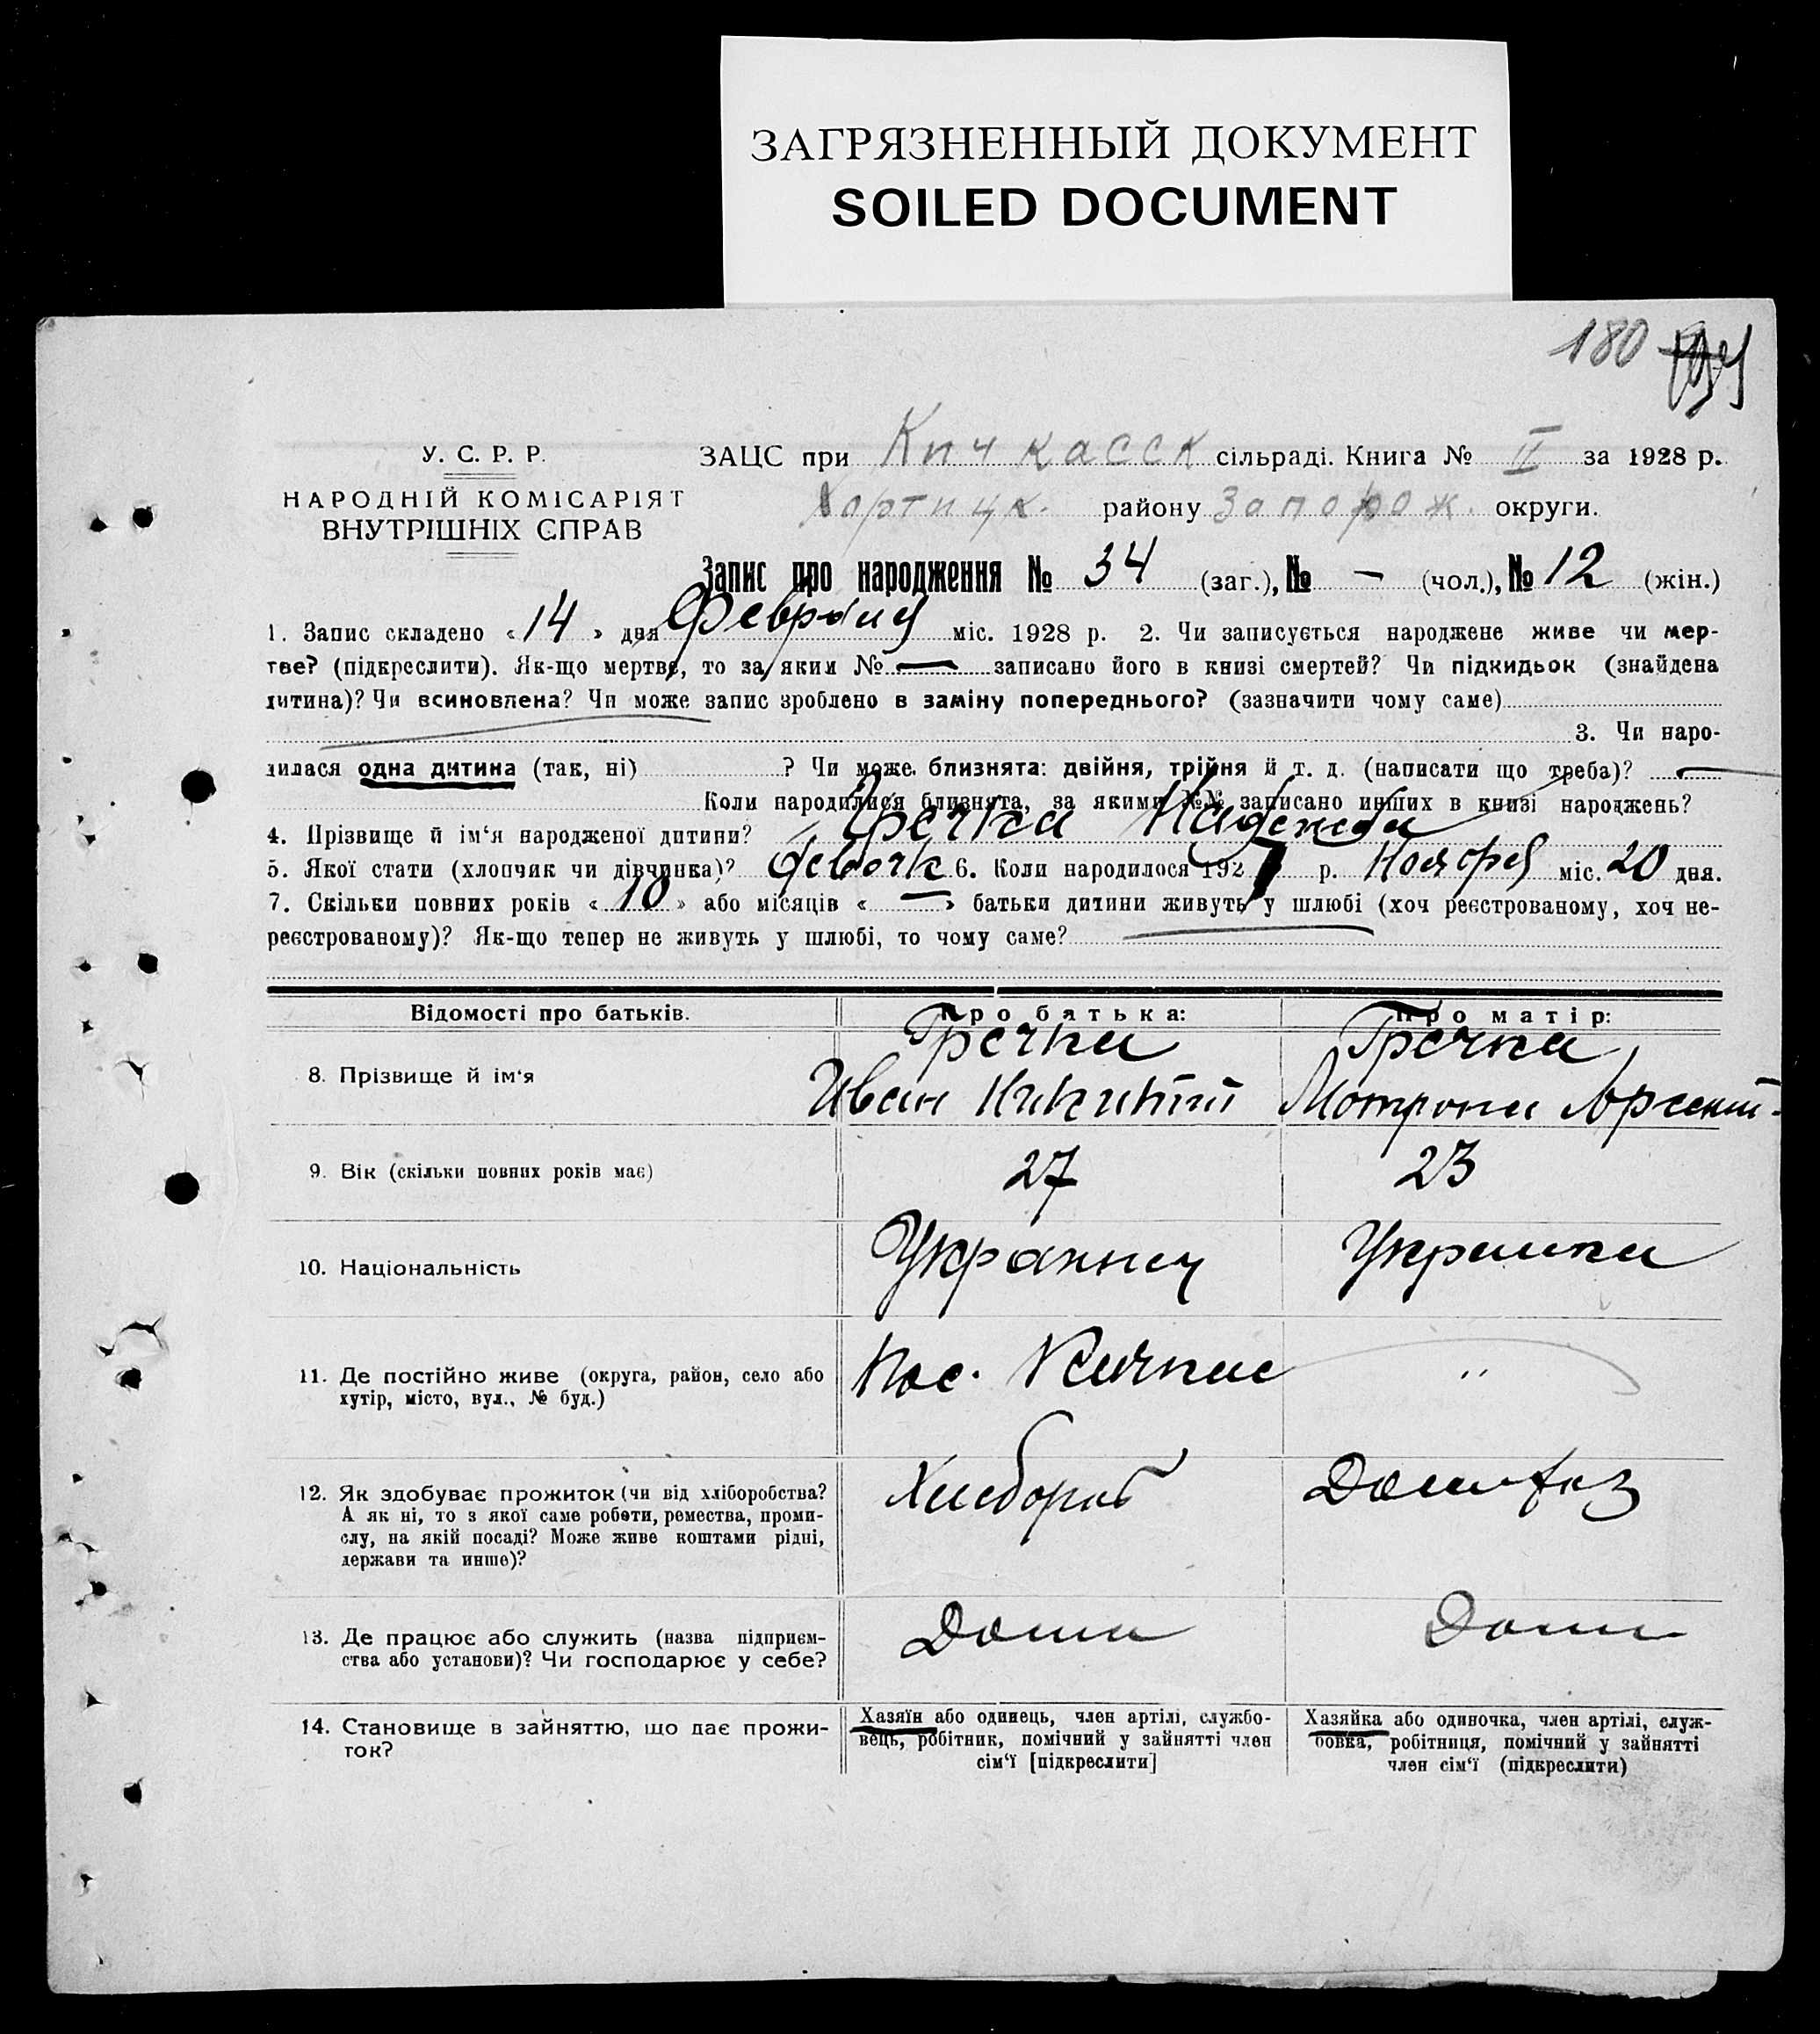 ЗАГРЯЗНЕННЫЙ ДОКУМЕНТ
SOILED DOCUMENT
180
У. С. Р. Р.
НАРОДНІЙ КОМІСАРІЯТ
ВНУТРІШНІХ СПРАВ
ЗАЦС при Кичкасск сільраді. Книга № II за 1928 р.
Хортицк. району Запорож. округи.
Запис про народження № 34 (заг.), № — (чол.), № 12 (жін.)
1. Запис складено «14» дня Февраля міс. 1928 р. 2. Чи записується народжене живе чи мер-
тве? (підкреслити). Як-що мертве, то за яким № — записано його в книзі смертей? Чи підкидьок (знайдена
дитина)? Чи всиновлена? Чи може запис зроблено в заміну попереднього? (зазначити чому саме)
3. Чи наро-
дилася одна дитина (так, ні) ? Чи може близнята: двійня, трійня й т. д. (написати що треба)? —
Коли народилися близнята, за якими №№ записано инших в книзі народжень?
4. Прізвище й ім‘я народженої дитини? Гречка Надежда
5. Якої стати (хлопчик чи дівчинка)? девочк 6. Коли народилося 1927 р. Ноября міс. 20 дня.
7. Скільки повних років «10» або місяців «—» батьки дитини живуть у шлюбі (хоч реєстрованому, хоч не-
реєстрованому)? Як-що тепер не живуть у шлюбі, то чому саме?
Відомості про батьків. Про батька: Про матір:
8. Прізвище й ім‘я
Гречка Гречка
Иван Никитии Мотрона
9. Вік (скільки повних років має) 27 23
10. Національність Украинец Украинка
11. Де постійно живе (округа, район, село або
хутір, місто, вул., № буд.)
Кичкас "
12. Як здобуває прожиток (чи від хліборобства?
А як ні, то з якої саме роботи, ремества, проми-
слу, на якій посаді? Може живе коштами рідні,
держави та инше)?
Хлебороб Домохоз
13. Де працює або служить (назва підприєм-
ства або установи)? Чи господарює у себе?
Дома Дома
14. Становище в зайняттю, що дає прожи-
ток?
Хазяїн або одинець, член артілі, службо-
вець, робітник, помічний у зайнятті член
сім‘ї [підкреслити]
Хазяйка або одиночка, член артілі, служ-
бовка, робітниця, помічний у зайнятті
член сім‘ї (підкреслити)